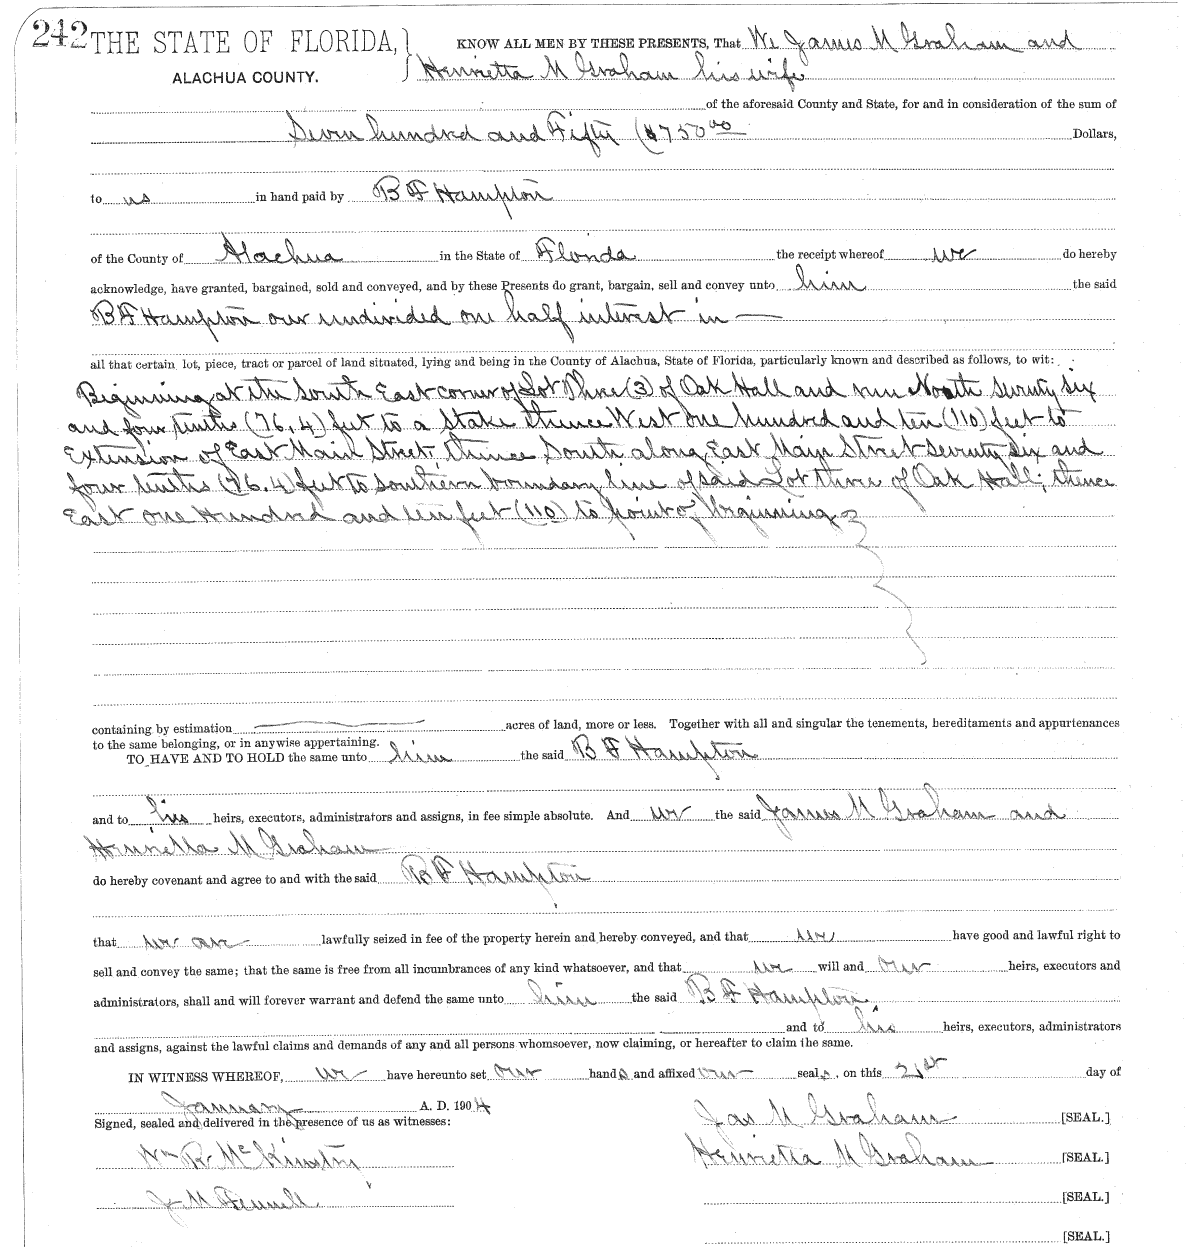 242 THE STATE OF FLORIDA, KNOW ALL MEN BY THESE PRESENTS, That We James M Graham and
ALACHUA COUNTY. Henrietta M Graham his wife
of the aforesaid County and State, for and in consideration of the sum of
Seven hundred and Fifty ($750.00 Dollars,
to us in hand paid by B F Hampton
of the County of Alachua in the State of Florida the receipt whereof we do hereby
acknowledge, have granted, bargained, sold and conveyed, and by these Presents do grant, bargain, sell and convey unto him the said
B F Hampton our undivided one half interest in —
all that certain lot, piece, tract or parcel of land situated, lying and being in the County of Alachua, State of Florida, particularly known and described as follows, to wit:
Beginning at the South East corner of Lot Three (3) of Oak Hall and run North seventy six
and four tenths (76.4) feet to a Stake thence West one hundred and ten (110) feet to
Extension of East Main Street, thence South along East Main Street seventy six and
four tenths (76.4) feet to southern boundary line of said Lot three of Oak Hall; thence
East one Hundred and ten feet (110) to point of beginning
containing by estimation acres of land, more or less. Together with all and singular the tenements, hereditaments and appurtenances
to the same belonging, or in anywise appertaining.
TO HAVE AND TO HOLD the same unto him the said B F Hampton
and to his heirs, executors, administrators and assigns, in fee simple absolute. And we the said James M Graham and
Henrietta M Graham
do hereby covenant and agree to and with the said B F Hampton
that we are lawfully seized in fee of the property herein and hereby conveyed, and that we have good and lawful right to
sell and convey the same; that the same is free from all incumbrances of any kind whatsoever, and that we will and our heirs, executors and
administrators, shall and will forever warrant and defend the same unto him the said B F Hampton
and to his heirs, executors, administrators
and assigns, against the lawful claims and demands of any and all persons whomsoever, now claiming, or hereafter to claim the same.
IN WITNESS WHEREOF, we have hereunto set our hands and affixed our seals, on this 21st day of
January A. D. 1904
Signed, sealed and delivered in the presence of us as witnesses: Jas M Graham [SEAL.]
Wm R. McKinstry Henrietta M Graham [SEAL.]
J M Fennell [SEAL.]
[SEAL.]